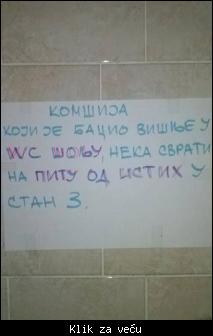 КОМШИЈА
КОЈИ ЈЕ БАЦИО ВИШЊЕ У
WC ШОЉУ, НЕКА СВРАТИ
НА ПИТУ ОД ИСТИХ У
СТАН 3.
Klik za veću